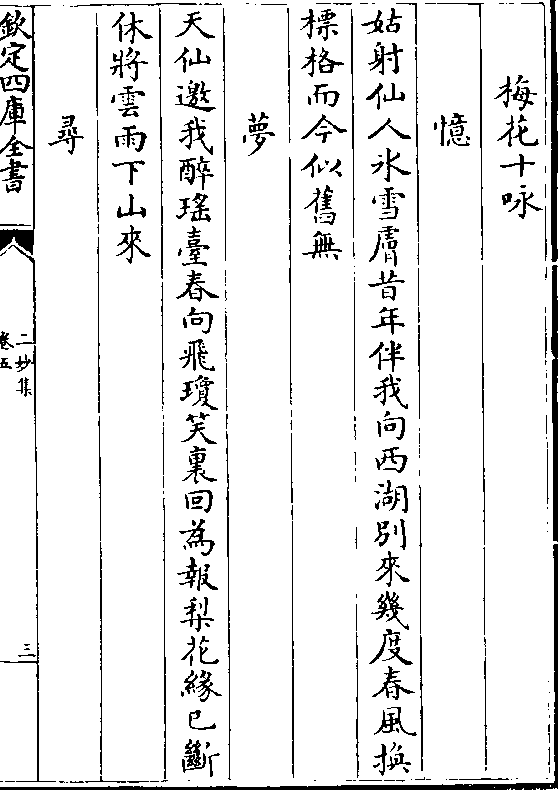 梅花十咏
憶
姑射仙人氷雪膚昔年伴我向西湖別來幾度春風換
標格而今似舊無
夢
天仙邀我醉瑤臺春向飛瓊笑裏回為報梨花緣已斷
休將雲雨下山來
尋
欽定四庫全書
二妙集
卷五
三